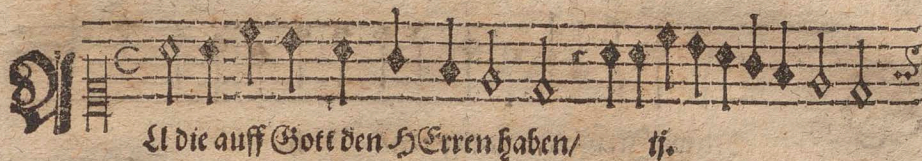 All die auff Gott den HErren haben/ ij.